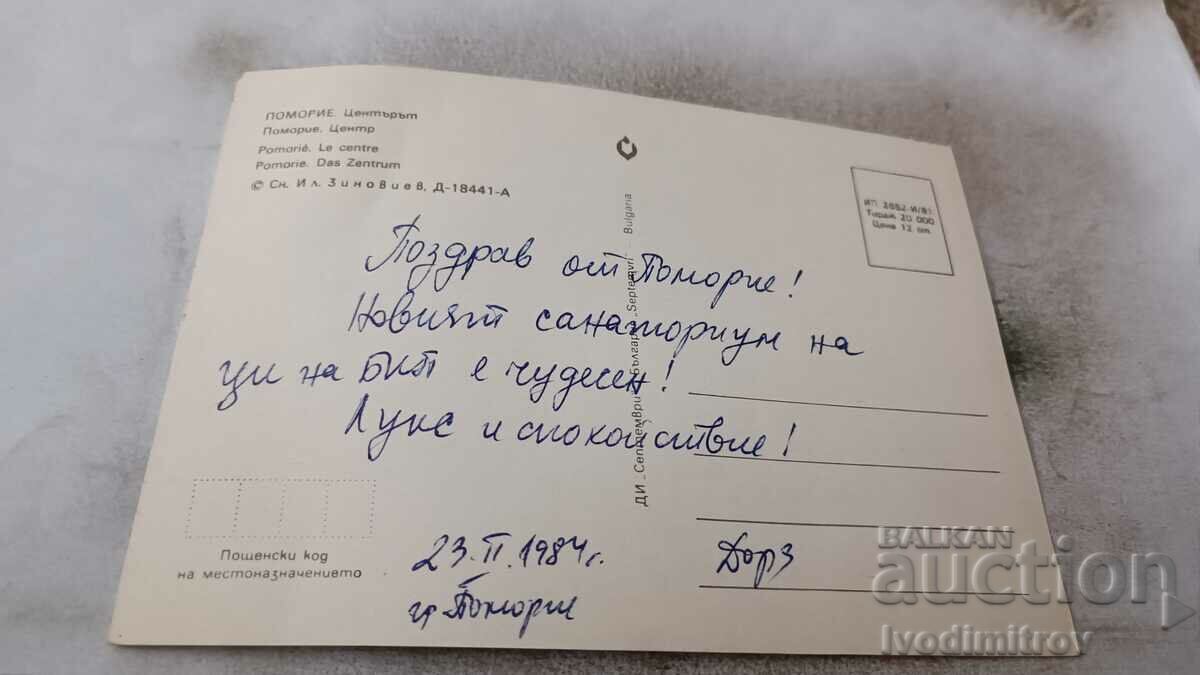 ПОМОРИЕ. Центърът
Поморие. Центр
Pomorié. Le centre
Pomorie. Das Zentrum
© Сн. Ил. Зиновиев, Д-18441-А
ДИ „Септември" България „Septemvri" Bulgaria
ИП 2882-И/81
Тираж 20 000
Цена 12 ст.
Поздрав от Поморие!
Новият санаториум на
ЦК на БКП е чудесен!
Лукс и спокойствие!
23.II.1984г.
гр Поморие
Дорз
Пощенски код
на местоназначението
BALKAN
auction
Ivodimitrov